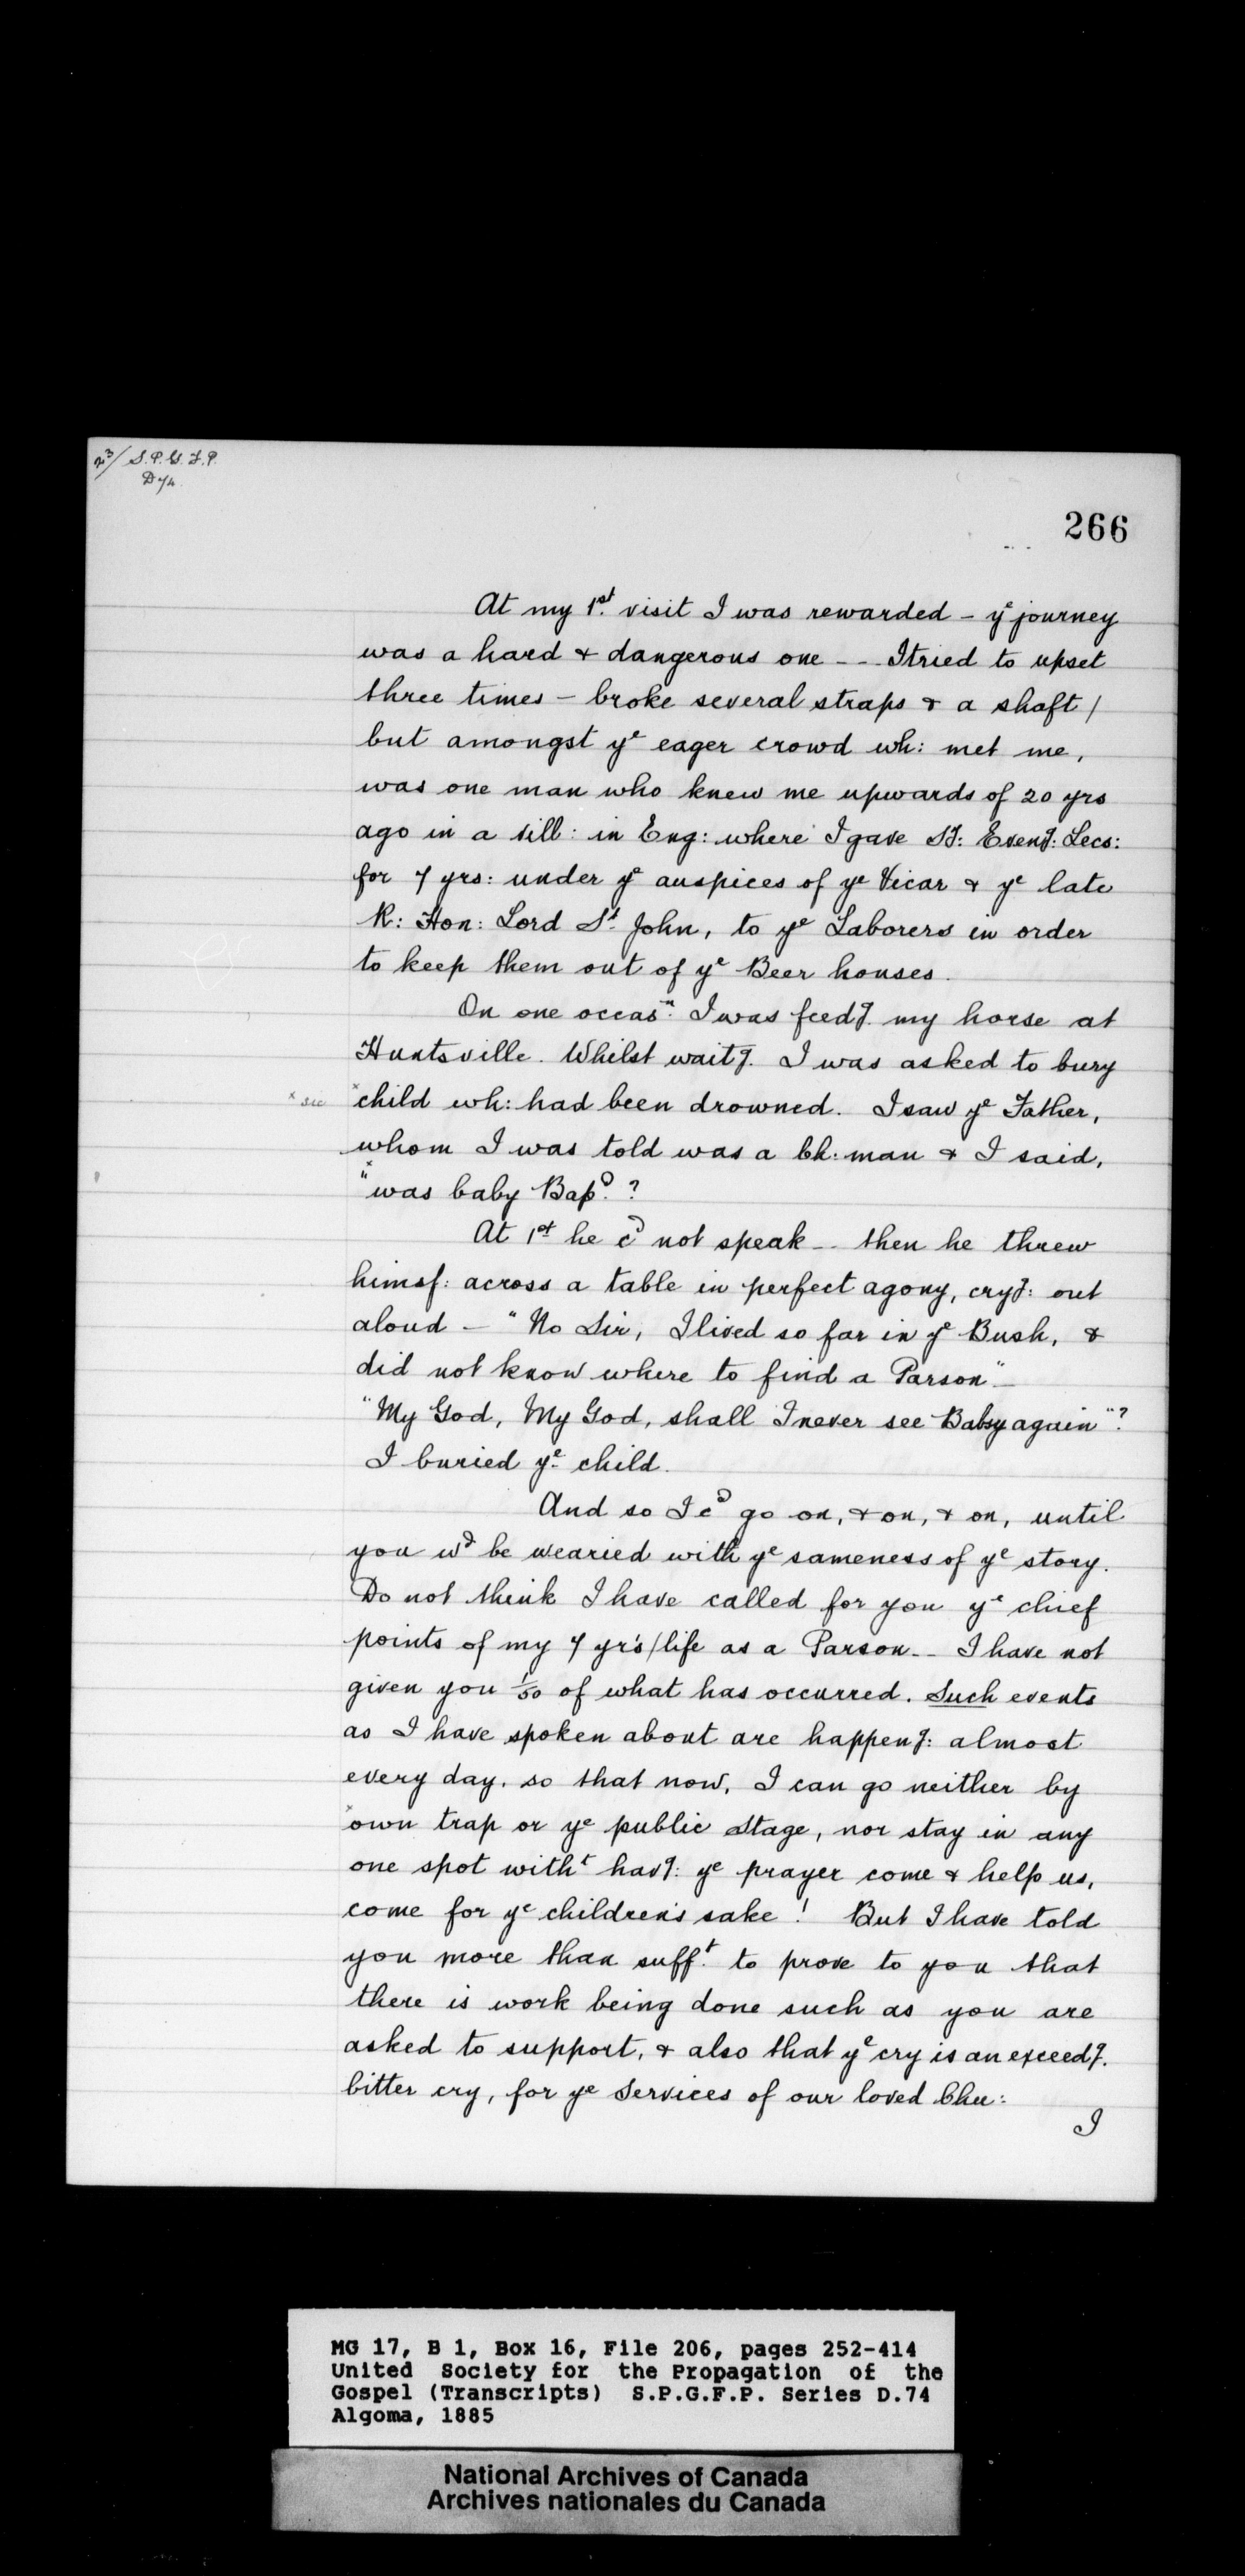 23/ S.P.G.F.P.
D 74.
266
At my 1st. visit I was rewarded – ye journey
was a hard & dangerous one - - - I tried to upset
three times – broke several straps & a shaft /
but amongst ye eager crowd wh: met me,
was one man who knew me upwards of 20 yrs
ago in a vill: in Eng: where I gave Sg: Eveng: Lecs:
for 7 yrs: under ye auspices of ye Vicar & ye late
R: Hon: Lord St. John, to ye Laborers in order
to keep them out of ye Beer houses.
On one occasn. I was feedg. my horse at
Huntsville. Whilst waitg. I was asked to bury
x sic xchild wh: had been drowned. I saw ye Father,
whom I was told was a Ch: man & I said,
"was baby Bapd. ?
At 1st he cd not speak - - then he threw
himsf: across a table in perfect agony, cryg: out
aloud – "No Sir, I lived so far in ye Bush, &
did not know where to find a Parson" –
"My God, My God, shall I never see Baby again"?
I buried ye child.
And so I cd go on, & on, & on, until
you wd be wearied with ye sameness of ye story.
Do not think I have called for you ye chief
points of my 7 yr's/life as a Parson - - I have not
given you 1/50 of what has occurred. Such events
as I have spoken about are happeng: almost
every day, so that now, I can go neither by
xown trap or ye public Stage, nor stay in any
one spot witht havg: ye prayer come & help us,
come for ye children's sake ! But I have told
you more than sufft. to prove to you that
there is work being done such as you are
asked to support, & also that ye cry is an exceedg.
bitter cry, for ye Services of our loved Chu:
I
MG 17, B 1, Box 16, File 206, pages 252-414
United Society for the Propagation of the
Gospel (Transcripts) S.P.G.F.P. Series D.74
Algoma, 1885
National Archives of Canada
Archives nationales du Canada